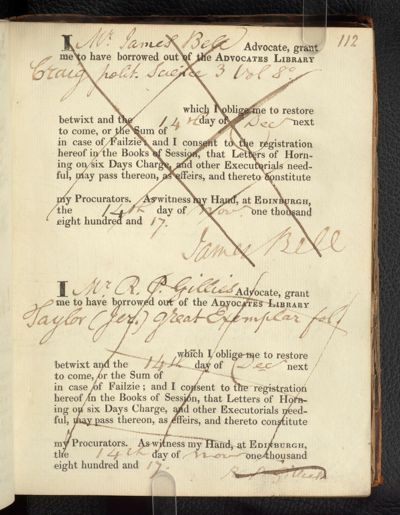 112
I Mr. James Bell Advocate, grant
me to have borrowed out of the ADVOCATES LIBRARY
Craig polit. Science 3 Vol 8o.
which I oblige me to restore
betwixt and the 14th day of Decr next
to come, or the Sum of
in case of Failzie; and I consent to the registration
hereof in the Books of Session, that Letters of Horn-
ing on six Days Charge, and other Executorials need-
ful, may pass thereon, as effeirs, and thereto constitute
my Procurators. As witness my Hand, at EDINBURGH,
the 14th day of Novr. one thousand
eight hundred and 17.
James Bell
I Mr R. P. Gillies Advocate, grant
me to have borrowed out of the ADVOCATES LIBRARY
Taylor (Jer.) Great Exemplar fol.
which I oblige me to restore
betwixt and the 14th day of Decr next
to come, or the Sum of
in case of Failzie; and I consent to the registration
hereof in the Books of Session, that Letters of Horn-
ing on six Days Charge, and other Executorials need-
ful, may pass thereon, as effeirs, and thereto constitute
my Procurators. As witness my Hand, at EDINBURGH,
the 14th day of Novr one thousand
eight hundred and 17.
R. P. Gillies